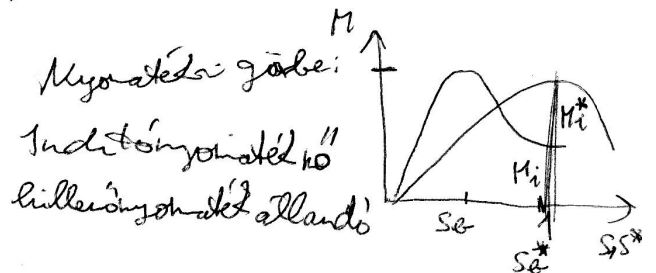 M
Nyomatéki görbe:
Indítónyomaték nő
billenőnyomaték állandó
Mi*
Mi
Sb
Sb*
S,S*